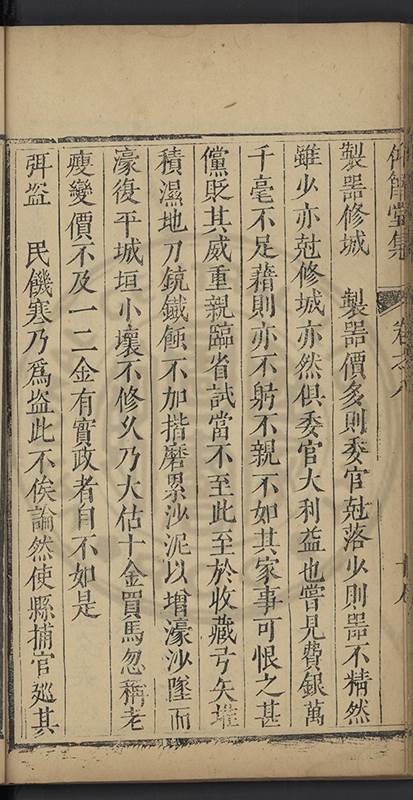 仰節堂集
卷之八
製噐修城　製噐價多則委官尅落少則噐不精然
雖少亦尅修城亦然俱委官大利益也嘗見費銀萬
千毫不足藉則亦不躬不親不如其家事可恨之甚
儻貶其威重親臨省試當不至此至於收藏弓矢堆
積濕地刀銃鐵蝕不加揩磨累沙泥以增濠沙墜而
濠復平城垣小壞不修久乃大估十金買馬忽稱老
瘦變價不及一二金有實政者自不如是
弭盗　民饑寒乃爲盗此不俟論然使縣捕官廵其